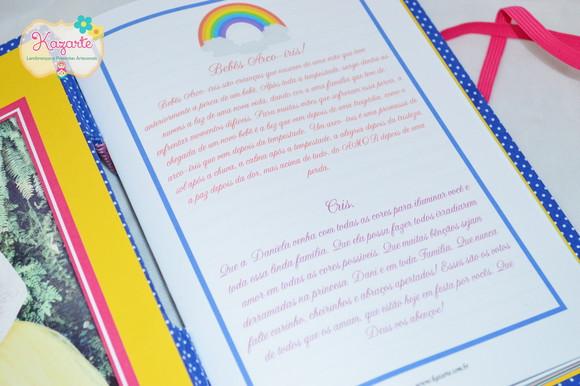 Kazarte
Lembranças e Presentes Artesanais
Bebês Arco-íris!
Bebês Arco-íris são crianças que nascem de uma mãe que teve
anteriormente a perda de um bebê. Após toda a tempestade, surge dentre as
nuvens a luz de uma nova vida, dando cor a uma família que teve de
enfrentar momentos difíceis. Para muitas mães que sofreram essa perda, a
chegada de um novo bebê é a luz que vem depois de uma tragédia, como o
arco-íris que vem depois da tempestade. Um arco-íris é uma promessa de
sol após a chuva, a calma após a tempestade, a alegria depois da tristeza,
a paz depois da dor, mas acima de tudo, do AMOR depois de uma
perda.
Cris,
Que a Daniela venha com todas as cores para iluminar você e
toda essa linda família. Que ela possa fazer todos irradiarem
amor em todas as cores possíveis. Que muitas bênçãos sejam
derramadas na princesa Dani e em toda Família. Que nunca
falte carinho, cheirinhos e abraços apertados! Esses são os votos
de todos que os amam, que estão hoje em festa por vocês. Que
Deus vos abençoe!
www.kazarte.com.br